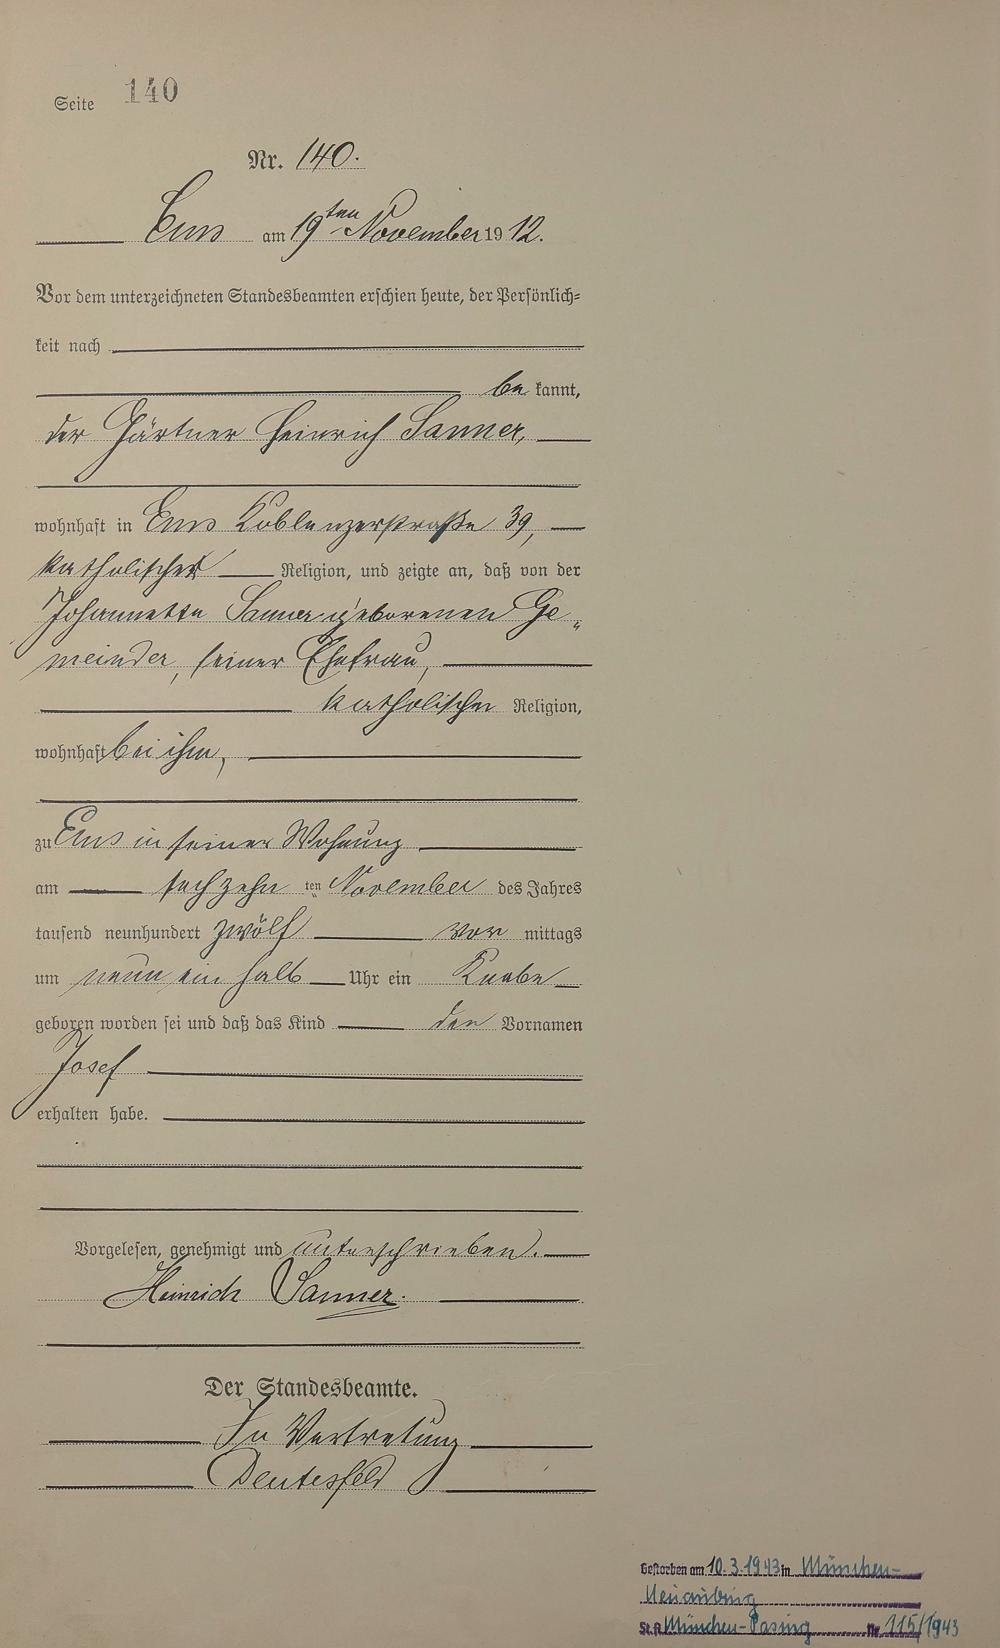 Seite 140
Nr. 140.
Ems am 19ten November 1912.
Vor dem unterzeichneten Standesbeamten erschien heute, der Persönlich-
keit nach
be kannt,
der Gärtner Heinrich Sanner,
wohnhaft in Ems Koblenzerstraße 39,
katholischer Religion, und zeigte an, daß von der
Johannetta Sanner geborenen Ge-
meinder, seiner Ehefrau,
katholischer Religion,
wohnhaft bei ihm,
zu Ems in seiner Wohnung
am sechzehn ten November des Jahres
tausend neunhundert zwölf vor mittags
um neun ein halb Uhr ein Knabe
geboren worden sei und daß das Kind den Vornamen
Josef
erhalten habe.
Vorgelesen, genehmigt und unterschrieben.
Heinrich Sanner.
Der Standesbeamte.
In Vertretung
Deutesfeld
Gestorben am 10.3.1943 in München-
Neuaubing
St.A. München-Pasing Nr. 115/1943